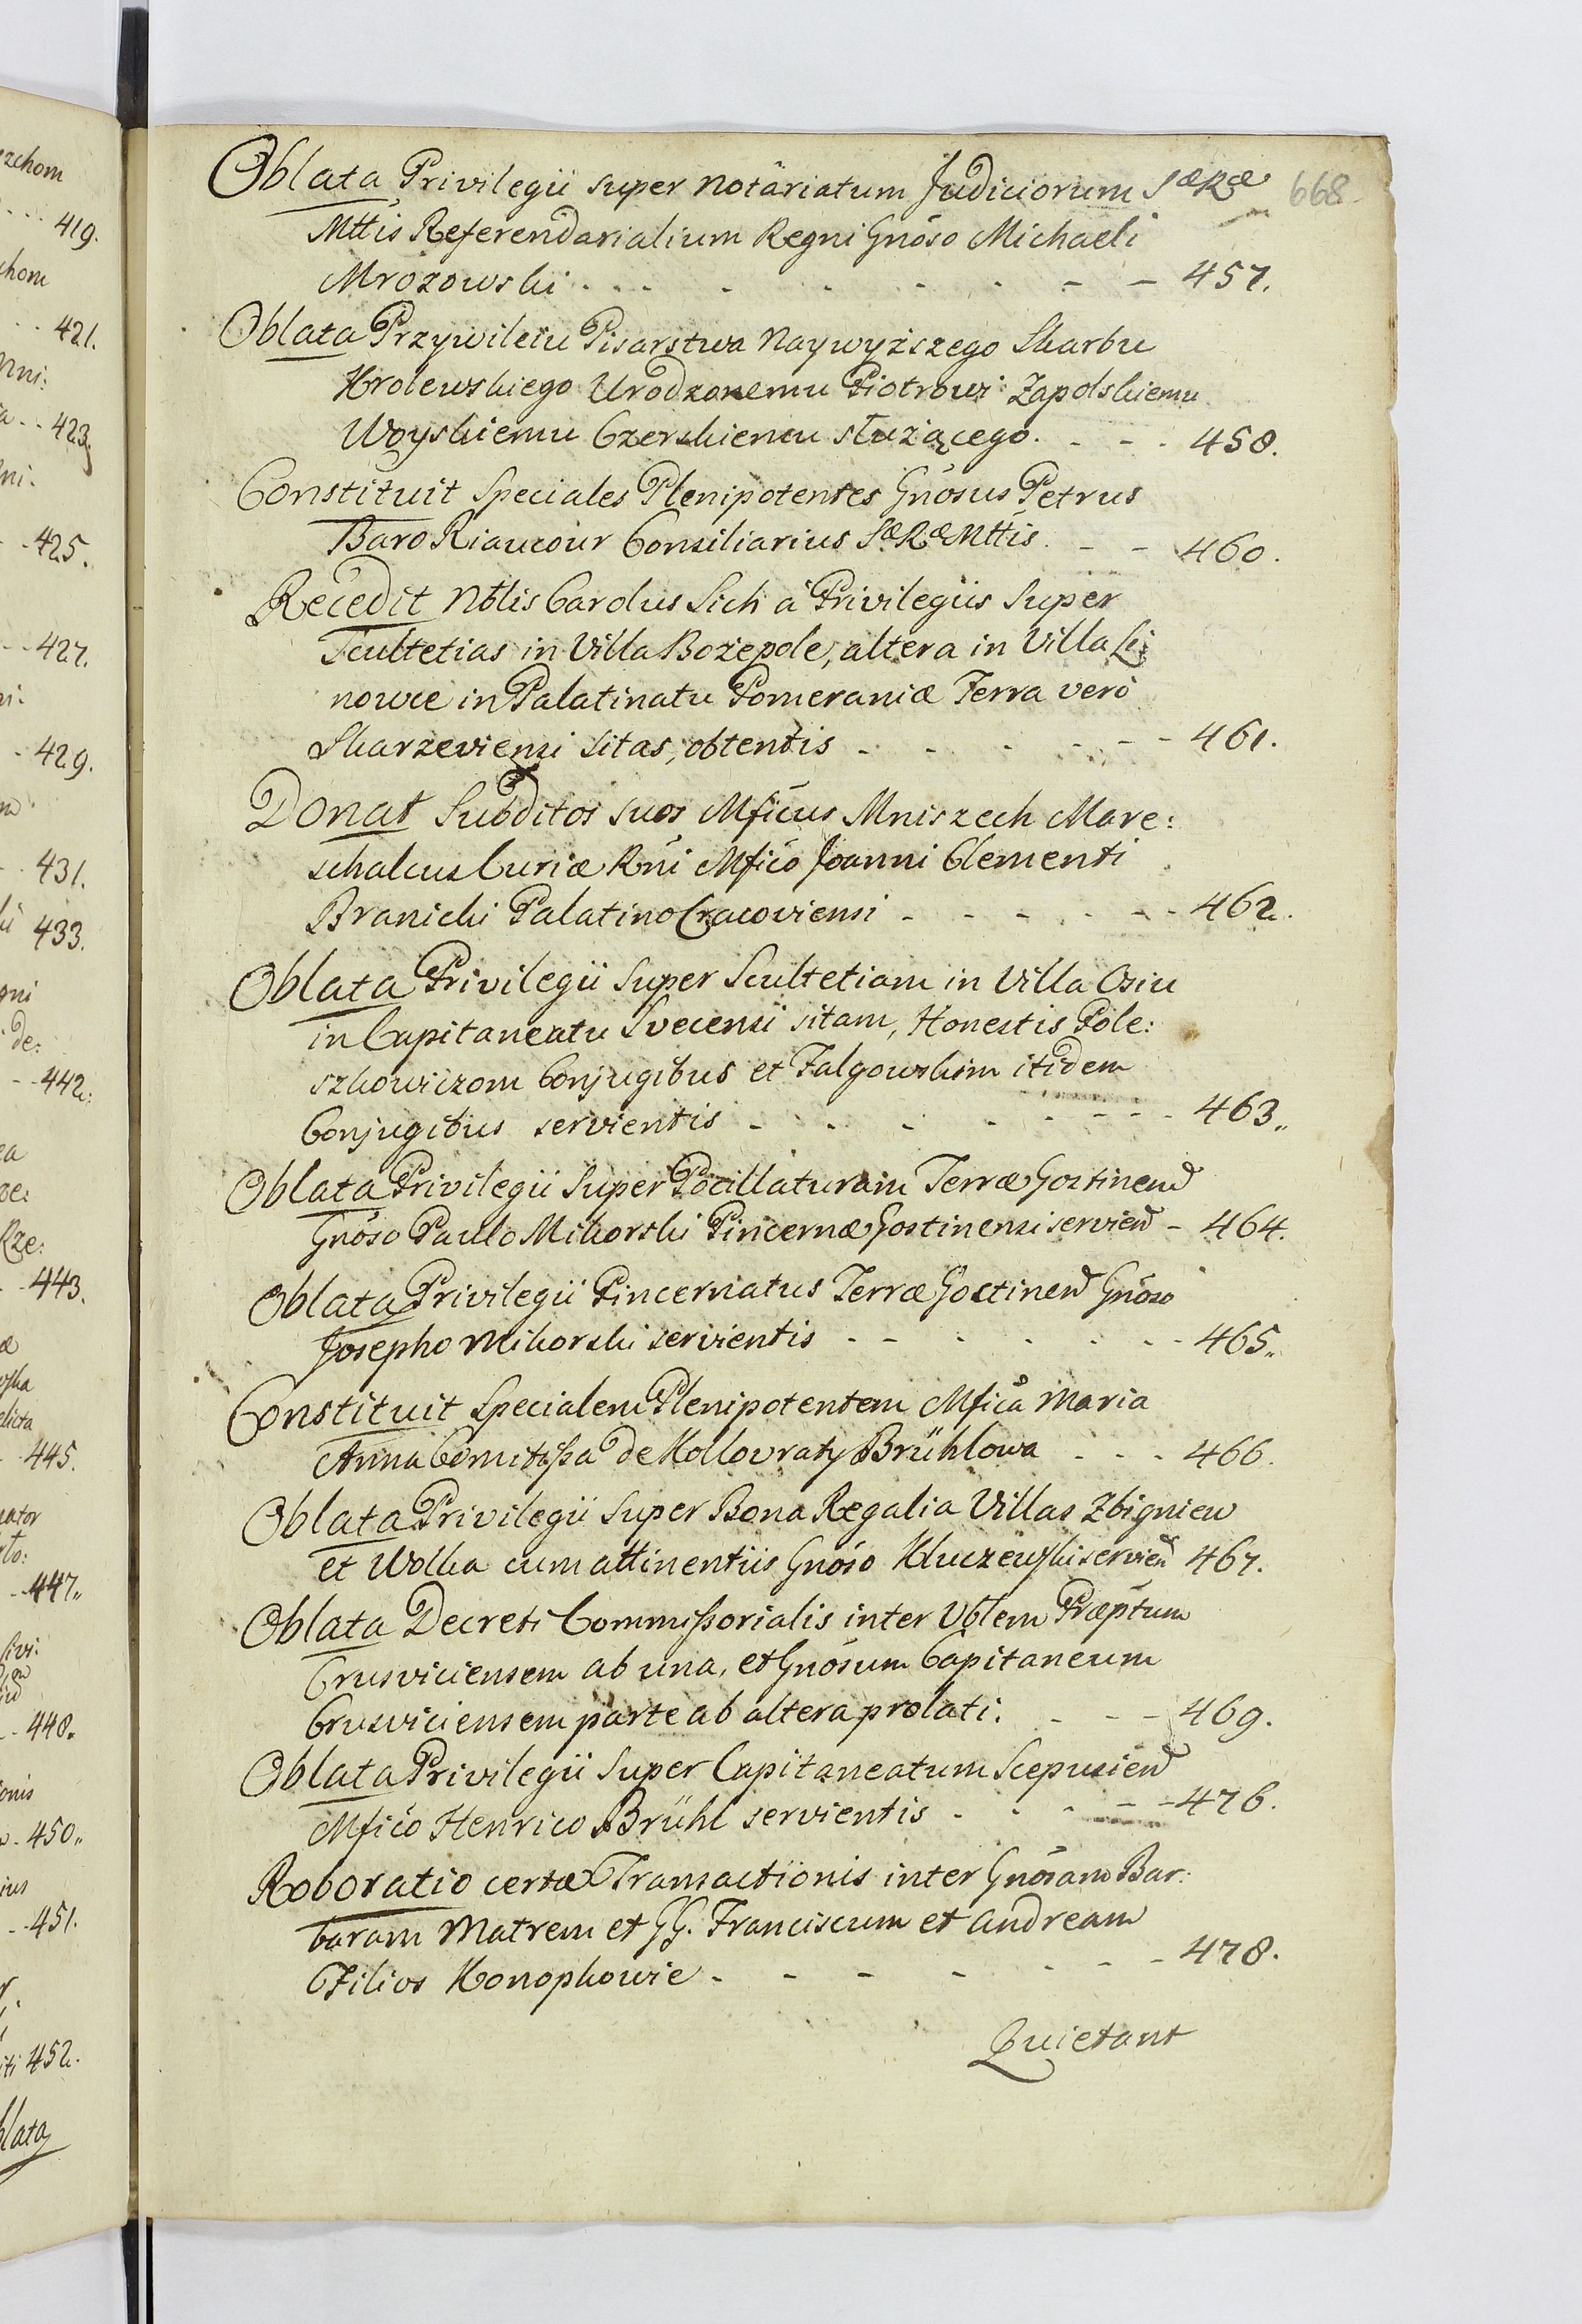 668.
Oblata Privilegii super Notariatum Judiciorum SæRæ
Mttis Referendarialium Regni Gnoso Michaeli
Mrozowski - - - - - 457.
Oblata Przywileiu Pisarstwa Naywyższego Skarbu
Krolewskiego Urodzonemu Piotrowi Zapolskiemu
Woyskiemu Czerskiemu służącego. - - - 458.
Constituit Speciales Plenipotentes Gnosus Petrus
Baro Riaucour Consiliarius SæRæMttis. - - 460.
Recedit Nblis Carolus Sich à Privilegiis Super
Scultetias in Villa Bozepole, altera in Villa Li
nowce in Palatinatu Pomeraniæ Terra verò
Skarzeviensi sitas, obtentis - - - - - 461.
Donat Subditos suos Mficus Mniszech Mare:
schalcus Curiæ Rni Mfico Joanni Clementi
Branicki Palatino Cracoviensi - - - - - 462.
Oblata Privilegii Super Scultetiam in Villa Osiu
in Capitaneatu Svecensi sitam, Honestis Pole:
szkowiczom Conjugibus et Falgowskim itidem
Conjugibus servientis - - - - - 463.
Oblata Privilegii Super Pocillaturam Terræ Gostinens
Gnoso Paulo Mikorski Pincernæ Gostinensi servien - 464.
Oblata Privilegii Pincernatus Terræ Gostinen Gnoso
Josepho Mikorski servientis - - - - - 465.
Constituit Specialem Plenipotentem Mfica Maria
Anna Comitißa de Kollovraty Brühlowa - - - 466.
Oblata Privilegii Super Bona Regalia Villas Zbigniew
et Wolka cum attinentiis Gnoso Kluczewski servien 467.
Oblata Decreti Commißorialis inter Vblem Præptum
Crusviciensem ab una, et Gnosum Capitaneum
Crusviciensem parte ab altera prolati. - - - 469.
Oblata Privilegii Super Capitaneatum Scepusien
Mfico Henrico Brühl servientis - - - - - 476.
Roboratio certæ Transactionis inter Gnosam Bar:
baram Matrem et GG. Franciscum et Andream
Filios Konopkowie - - - - - 478.
Quietant
419.
421.
423.
425.
427.
429.
431.
433.
442.
443.
445.
447.
448.
450.
451.
452.